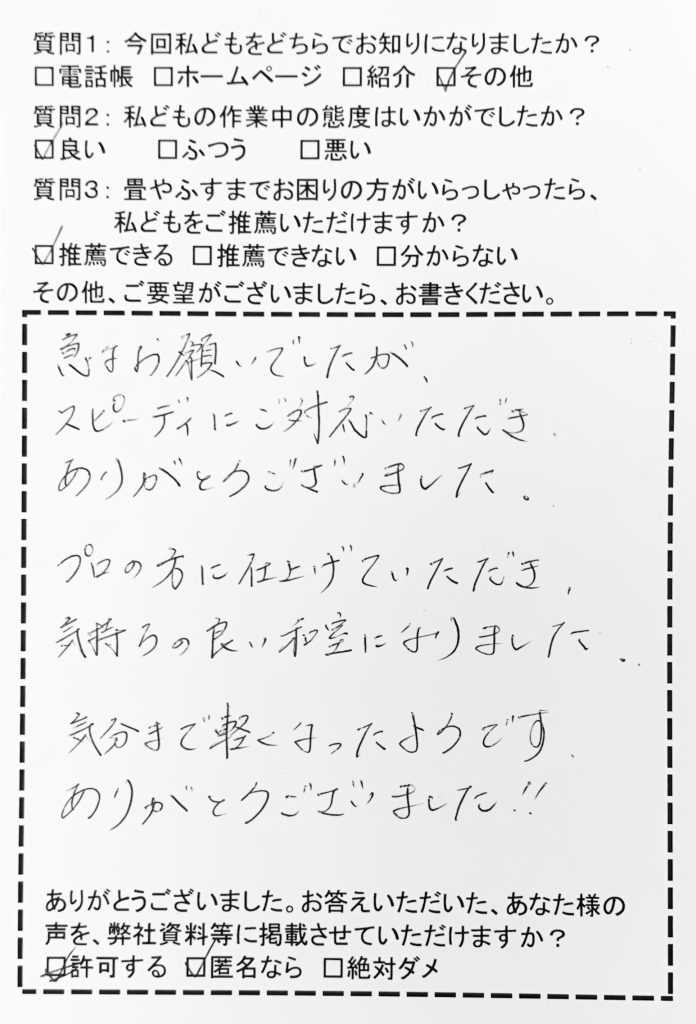 質問１：今回私どもをどちらでお知りになりましたか？
□電話帳 □ホームページ □紹介 ☑その他
質問２：私どもの作業中の態度はいかがでしたか？
☑良い □ふつう □悪い
質問３：畳やふすまでお困りの方がいらっしゃったら、
私どもをご推薦いただけますか？
☑推薦できる □推薦できない □分からない
その他、ご要望がございましたら、お書きください。
急なお願いでしたが、
スピーディにご対応いただき、
ありがとうございました。
プロの方に仕上げていただき、
気持ちの良い和室になりました。
気分まで軽くなったようです。
ありがとうございました!!
ありがとうございました。お答えいただいた、あなた様の
声を、弊社資料等に掲載させていただけますか？
☑許可する ☑匿名なら □絶対ダメ